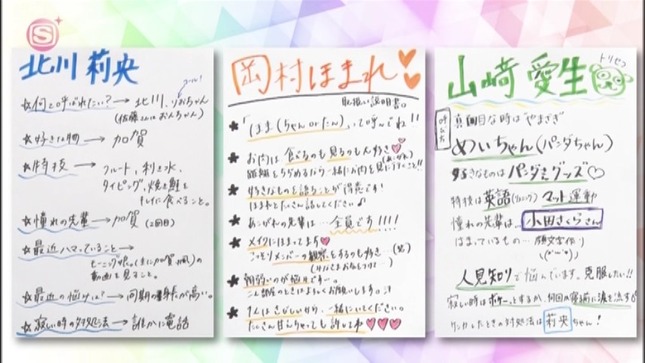 S
北川 莉央
★何と呼ばれたい?→北川、りおちゃん
コール!
(佐藤さんは おんちゃん)
★好きな物→加賀
★特技→フルート、利き水、
タイピング、焼き鮭を
キレイに食べること。
★憧れの先輩→加賀(2回目)
★最近ハマっていること→
モーニング娘。(主に加賀楓)の
動画を見ること。
★最近の悩みは?→同期の身長が高い。
★寂しい時の対処法→誰かに電話
岡村ほまれ♡♡
取扱い説明書。
★「ほま(ちゃん or たん)」って呼んでね!!
★お肉は食べるのも見るのも大好き♡
一緒にお肉を見に
★好きなものを語ることが得意です!
ほまれとたくさん話してください♪
★あこがれの先輩は…全員です!!!!
★メイクにはまってます♡
メンバーの観察をするのも好き…(笑)
★朝弱いのが悩みです…。
★1人はさびしいから、一緒にいてください。
たくさん甘えちゃっても許してね♡♡♡
山﨑 愛生
トリセツ
呼び方
真面目な時は やまざき
めいちゃん(パンダちゃん)
好きなものは パンダグッズ♡
特技は 英語 マット運動
憧れの先輩は… 小田さくらさん
はまっているもの…顔文字作り
人見知りで悩んでいます。克服したい!!
寂しい時は ボケーっとするか、
ケンカしたときの対処法は 莉央ちゃん!